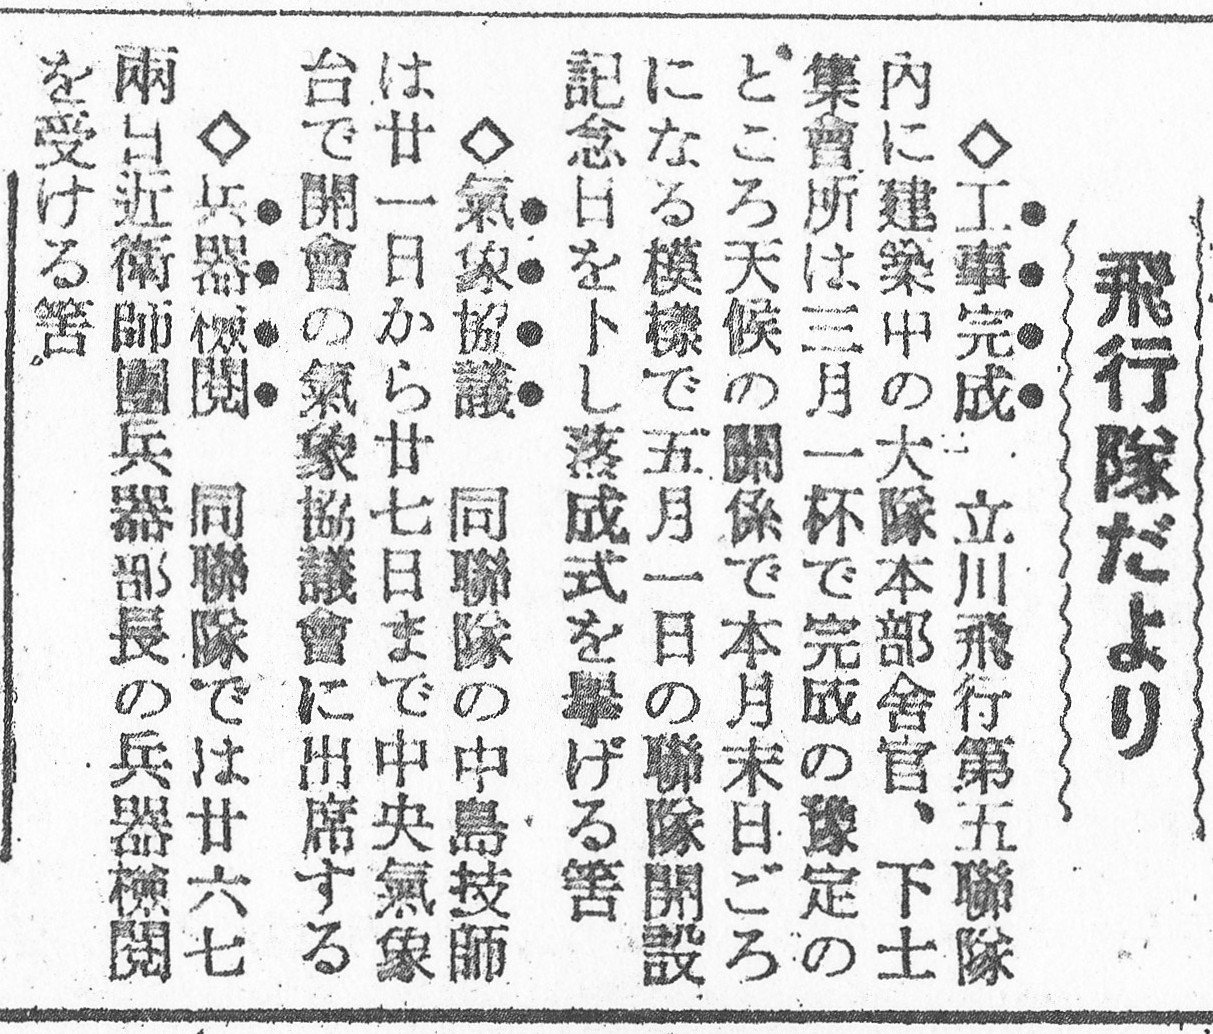 飛行隊だより
◇工事完成　立川飛行第五聯隊
內に建築中の大隊本部舍官、下士
集會所は三月一杯で完成の豫定の
ところ天候の關係で本月末日ごろ
になる模樣で五月一日の聯隊開設
記念日を卜し落成式を擧げる筈
◇氣象協議　同聯隊の中島技師
は廿一日から廿七日まで中央氣象
台で開會の氣象協議會に出席する
◇兵器檢閱　同聯隊では廿六七
兩日近衞師團兵器部長の兵器檢閱
を受ける筈。